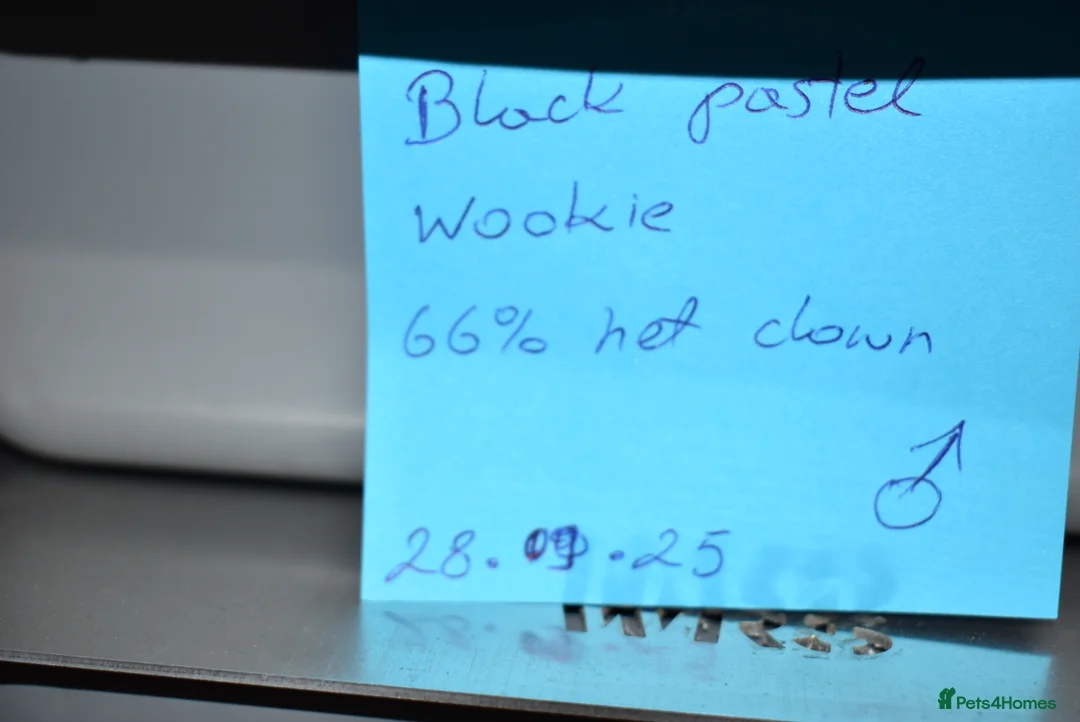 Black pastel
Wookie
66% het clown
♂
28. 09 .25
Pets4Homes